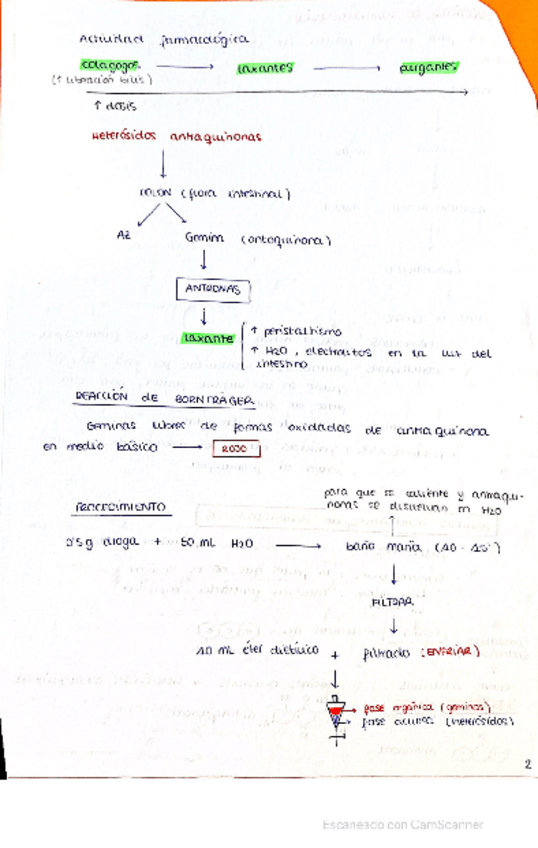 Actividad farmacológica
colagogos → laxantes → purgantes
(↑ liberación bilis)
↑ dosis
Heterósidos antraquinonas
COLON (flora intestinal)
AZ Genina (antraquinona)
ANTRONAS
laxante ↑ peristaltismo
↑ H2O, electrolitos en la luz del
intestino
REACCIÓN de BORNTRÄGER
Geninas libres de formas oxidadas de antraquinona
en medio básico → ROJO
para que se caliente y antraqui-
nonas se disuelvan en H2O
PROCEDIMIENTO
0'5g droga + 50 mL H2O → baño maría
FILTRAR
10 mL éter dietílico + filtrado (ENFRIAR)
fase orgánica (geninas)
fase acuosa (heterósidos)
2
Escaneado con CamScanner